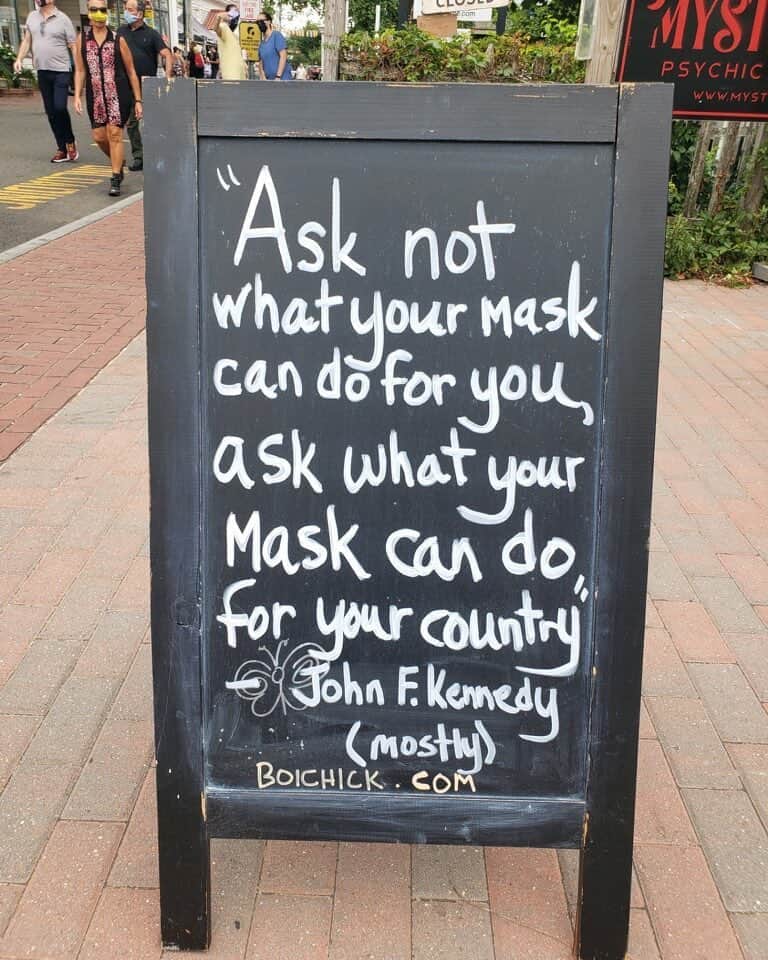 CLOSED
MYST
PSYCHIC
WWW.MYST
"Ask not
what your Mask
can do for you,
ask what your
Mask can do
for your country"
- John F. Kennedy
(mostly)
BOICHICK.COM